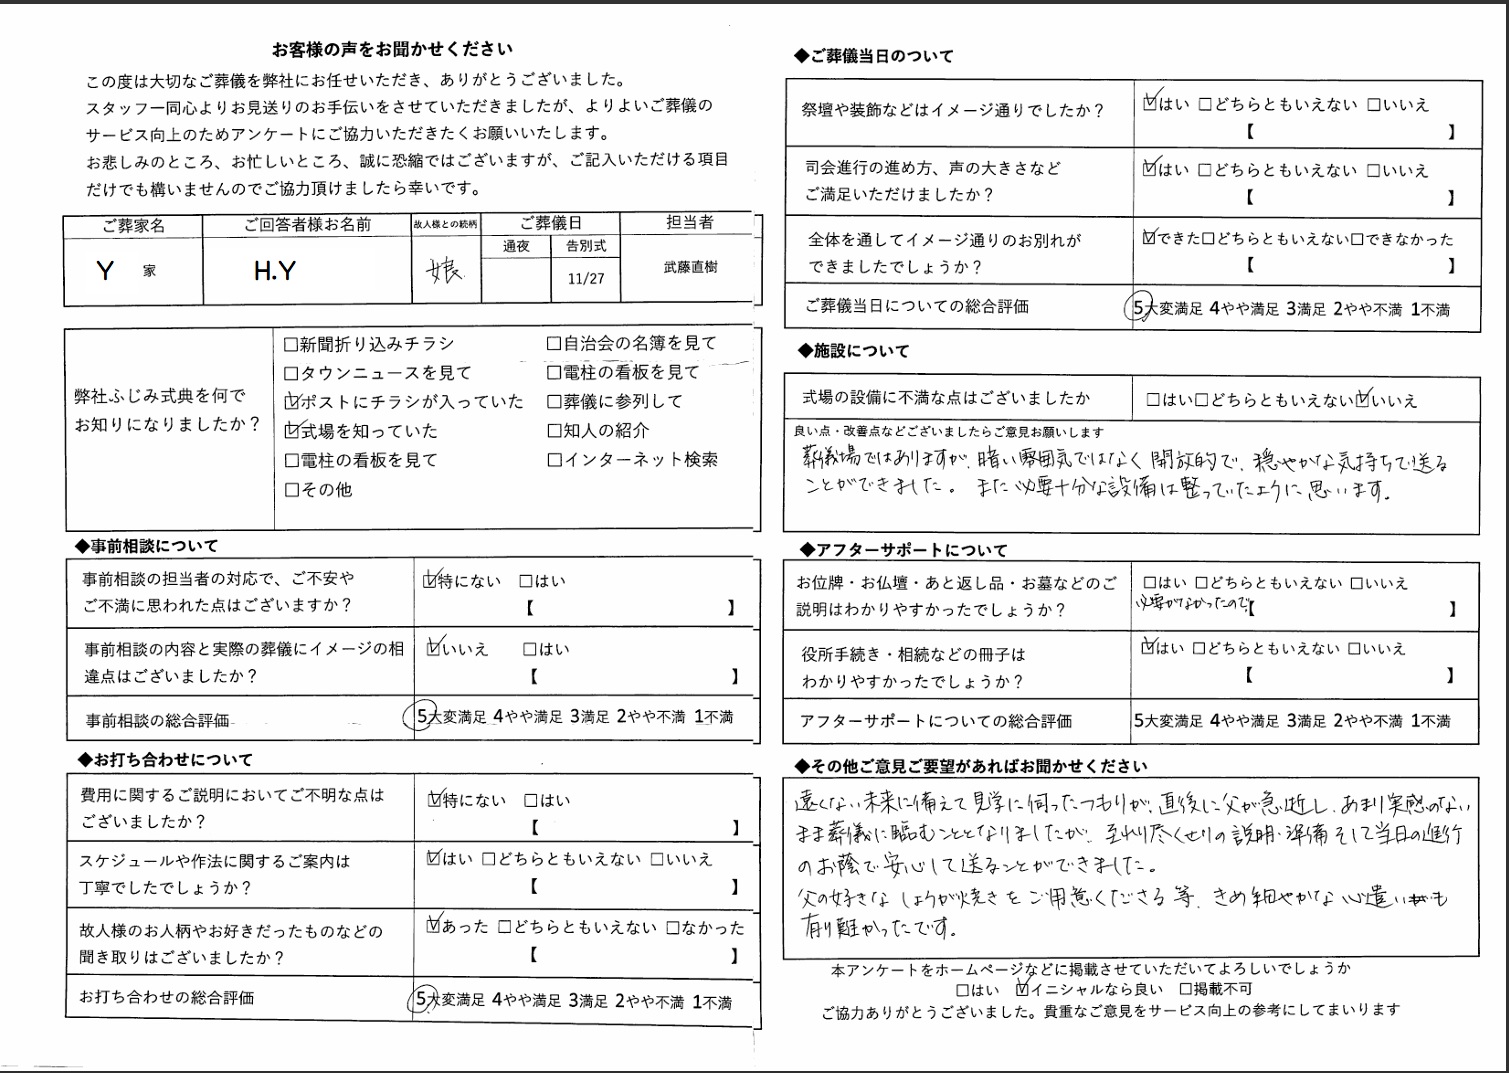 お客様の声をお聞かせください
この度は大切なご葬儀を弊社にお任せいただき、ありがとうございました。
スタッフ一同心よりお見送りのお手伝いをさせていただきましたが、よりよいご葬儀の
サービス向上のためアンケートにご協力いただきたくお願いいたします。
お悲しみのところ、お忙しいところ、誠に恐縮ではございますが、ご記入いただける項目
だけでも構いませんのでご協力頂けましたら幸いです。
ご葬家名 ご回答者様お名前 故人様との続柄 ご葬儀日 担当者
通夜 告別式
Y 家 H.Y 娘 11/27 武藤直樹
弊社ふじみ式典を何で
お知りになりましたか？
☐新聞折り込みチラシ ☐自治会の名簿を見て
☐タウンニュースを見て ☐電柱の看板を見て
☑ポストにチラシが入っていた ☐葬儀に参列して
☑式場を知っていた ☐知人の紹介
☐電柱の看板を見て ☐インターネット検索
☐その他
◆事前相談について
事前相談の担当者の対応で、ご不安や
ご不満に思われた点はございますか？
☑特にない ☐はい
【 】
事前相談の内容と実際の葬儀にイメージの相
違点はございましたか？
☑いいえ ☐はい
【 】
事前相談の総合評価 5大変満足 4やや満足 3満足 2やや不満 1不満
◆お打ち合わせについて
費用に関するご説明においてご不明な点は
ございましたか？
☑特にない ☐はい
【 】
スケジュールや作法に関するご案内は
丁寧でしたでしょうか？
☑はい ☐どちらともいえない ☐いいえ
【 】
故人様のお人柄やお好きだったものなどの
聞き取りはございましたか？
☑あった ☐どちらともいえない ☐なかった
【 】
お打ち合わせの総合評価 5大変満足 4やや満足 3満足 2やや不満 1不満
◆ご葬儀当日のついて
祭壇や装飾などはイメージ通りでしたか？
☑はい ☐どちらともいえない ☐いいえ
【 】
司会進行の進め方、声の大きさなど
ご満足いただけましたか？
☑はい ☐どちらともいえない ☐いいえ
【 】
全体を通してイメージ通りのお別れが
できましたでしょうか？
☑できた☐どちらともいえない☐できなかった
【 】
ご葬儀当日についての総合評価 5大変満足 4やや満足 3満足 2やや不満 1不満
◆施設について
式場の設備に不満な点はございましたか ☐はい☐どちらともいえない☑いいえ
良い点・改善点などございましたらご意見お願いします
葬儀場ではありますが、暗い雰囲気ではなく開放的で、穏やかな気持ちで送る
ことができました。また必要十分な設備は整っていたように思います。
◆アフターサポートについて
お位牌・お仏壇・あと返し品・お墓などのご
説明はわかりやすかったでしょうか？
☐はい ☐どちらともいえない ☐いいえ
必要がなかったので【 】
役所手続き・相続などの冊子は
わかりやすかったでしょうか？
☑はい ☐どちらともいえない ☐いいえ
【 】
アフターサポートについての総合評価 5大変満足 4やや満足 3満足 2やや不満 1不満
◆その他ご意見ご要望があればお聞かせください
遠くない未来に備えて見学に伺ったつもりが、直後に父が急逝し、あまり実感のない
まま葬儀に臨むこととなりましたが、至れり尽くせりの説明・準備そして当日の進行
のお蔭で安心して送ることができました。
父の好きなしょうが焼きをご用意くださる等、きめ細やかな心遣いも
有り難かったです。
本アンケートをホームページなどに掲載させていただいてよろしいでしょうか
☐はい ☑イニシャルなら良い ☐掲載不可
ご協力ありがとうございました。貴重なご意見をサービス向上の参考にしてまいります